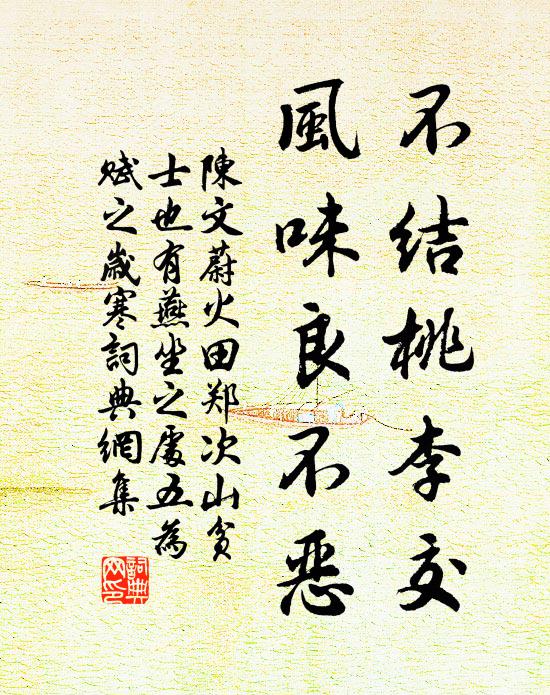 不结桃李交
風味良不恶
陳文蔚火田郑次山贫
士也有燕坐之處五為
赋之歲寒詞典網集
詞典網印